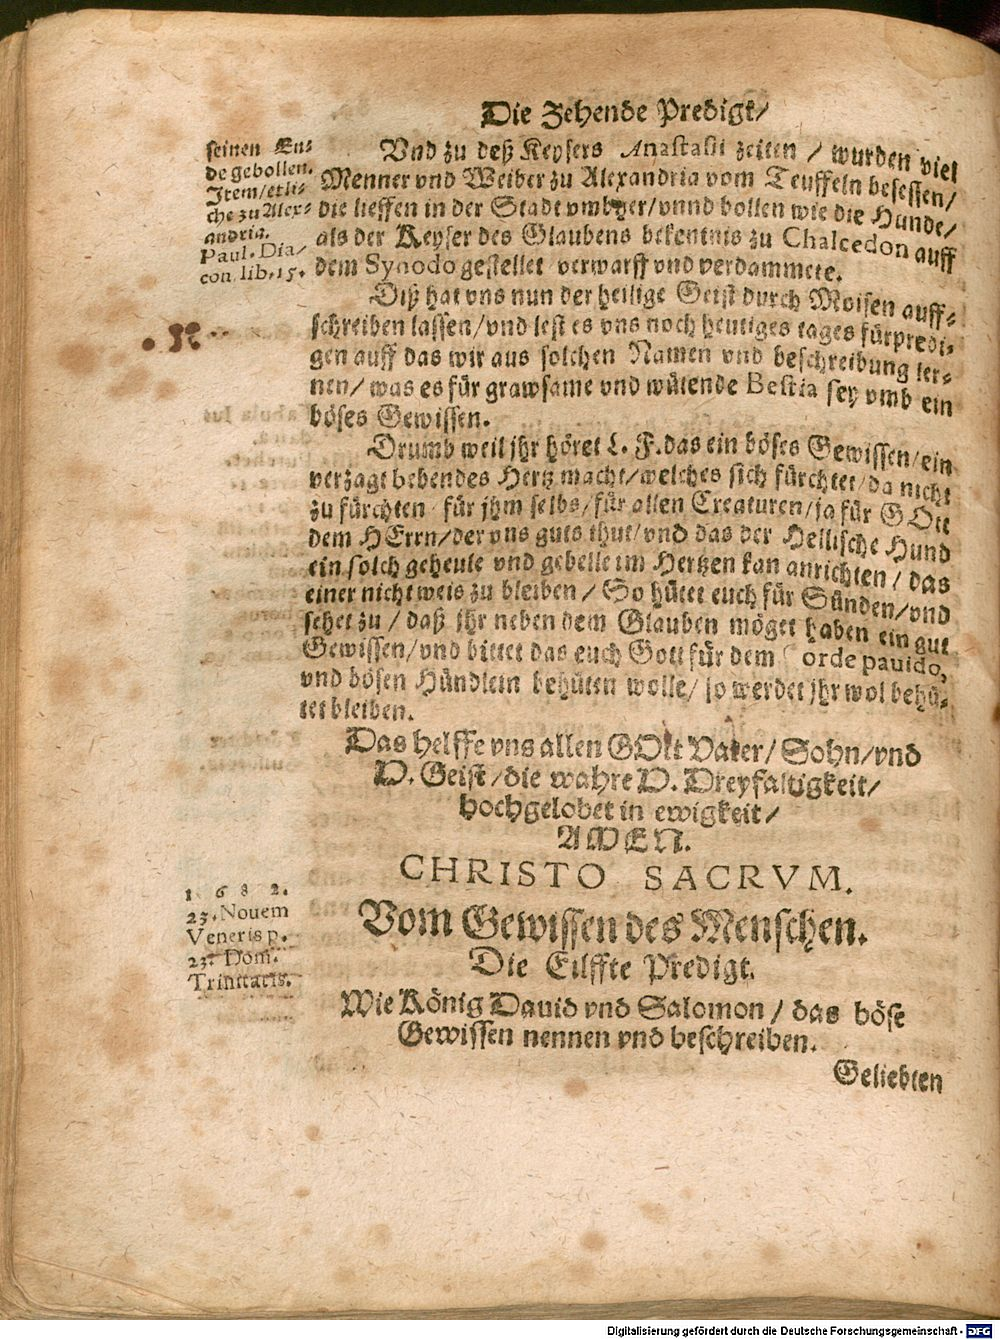 Die Zehende Predigt/
seinen En-
de gebollen.
Item/etli-
che zu Alex-
andria.
Paul. Dia/
con. lib. 15.
Vnd zu deß Keysers Anastasii zeiten / wurden viel
Menner vnd Weiber zu Alexandria vom Teuffeln besessen/
die lieffen in der Stadt vmbher/vnnd bollen wie die Hunde/
als der Keyser des Glaubens bekentnis zu Chalcedon auff
dem Synodo gestellet verwarff vnd verdammete.
Diß hat vns nun der heilige Geist durch Moisen auff-
schreiben lassen/vnd lest es vns noch heutiges tages fürpredi-
gen auff das wir aus solchen Namen vnd beschreibung ler-
nen/ was es für grawsame vnd wütende Bestia sey vmb ein
böses Gewissen.
Drumb weil jhr höret L. F. das ein böses Gewissen/ein
verzagt bebendes Hertz macht/welches sich fürchtet/da nicht
zu fürchten für jhm selbs/für allen Creaturen/ja für GOtt
dem HErrn/der vns guts thut/vnd das der Hellische Hund
ein solch geheule vnd gebelle im Hertzen kan anrichten / das
einer nicht weis zu bleiben / So hütet euch für Sünden/vnd
sehet zu / daß jhr neben dem Glauben möget haben ein gut
Gewissen/vnd bittet das euch Gott für dem Corde pavido,
vnd bösen Hündlein behüten wolle/ so werdet jhr wol behü-
tet bleiben.
Das helffe vns allen GOtt Vater/ Sohn/vnd
H. Geist/die wahre H. Dreyfaltigkeit/
hochgelobet in ewigkeit/
AMEN.
CHRISTO SACRVM.
1682.
23. Nouem
Veneris p.
23. Dom.
Trinitatis.
Vom Gewissen des Menschen.
Die Eilffte Predigt.
Wie König Dauid vnd Salomon / das böse
Gewissen nennen vnd beschreiben.
Geliebten
Digitalisierung gefördert durch die Deutsche Forschungsgemeinschaft - DFG